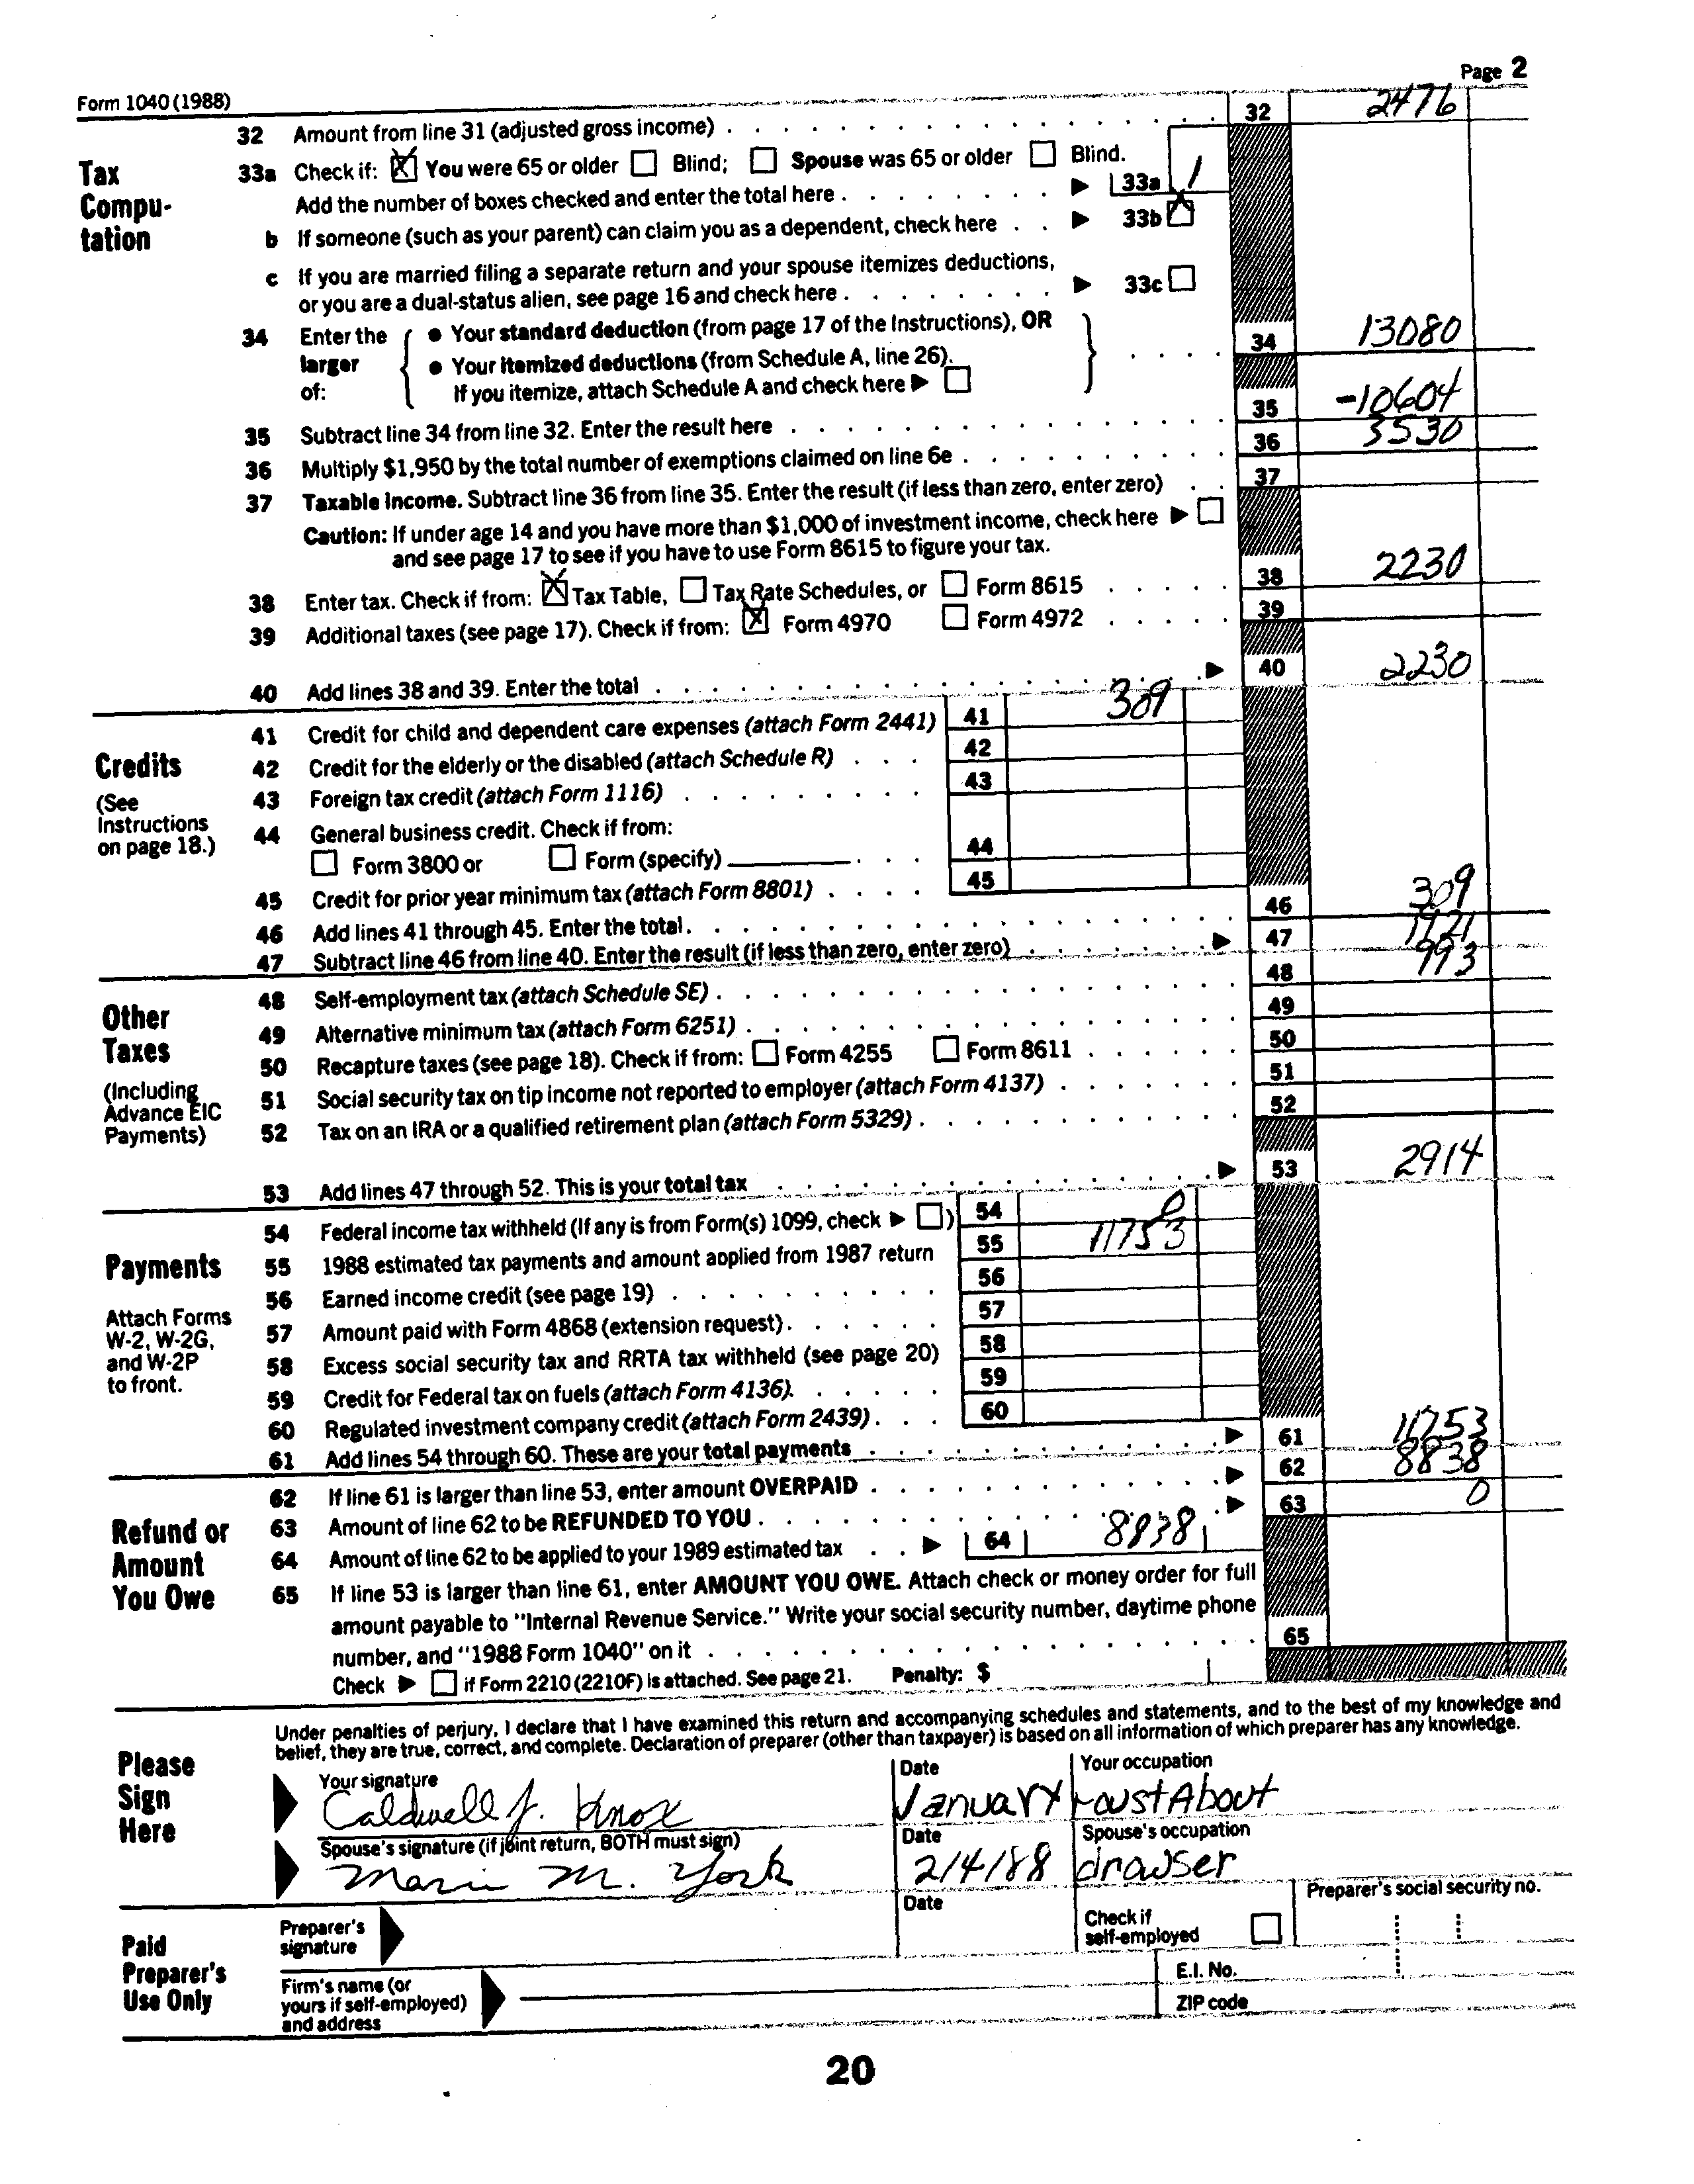 Form 1040 (1988)
Page 2
32 Amount from line 31 (adjusted gross income) 32 2476
Tax Computation
33a Check if: X You were 65 or older Blind; Spouse was 65 or older Blind.
Add the number of boxes checked and enter the total here 33a 1
b If someone (such as your parent) can claim you as a dependent, check here 33b X
c If you are married filing a separate return and your spouse itemizes deductions,
or you are a dual-status alien, see page 16 and check here 33c
34 Enter the larger of:
• Your standard deduction (from page 17 of the Instructions), OR
• Your itemized deductions (from Schedule A, line 26).
If you itemize, attach Schedule A and check here
34 13080
35 Subtract line 34 from line 32. Enter the result here 35 -10604
36 Multiply $1,950 by the total number of exemptions claimed on line 6e 36 3530
37 Taxable income. Subtract line 36 from line 35. Enter the result (if less than zero, enter zero) 37
Caution: If under age 14 and you have more than $1,000 of investment income, check here
and see page 17 to see if you have to use Form 8615 to figure your tax.
38 Enter tax. Check if from: X Tax Table, Tax Rate Schedules, or Form 8615 38 2230
39 Additional taxes (see page 17). Check if from: X Form 4970 Form 4972 39
40 Add lines 38 and 39. Enter the total 40 2230
Credits
(See Instructions on page 18.)
41 Credit for child and dependent care expenses (attach Form 2441) 41 309
42 Credit for the elderly or the disabled (attach Schedule R) 42
43 Foreign tax credit (attach Form 1116) 43
44 General business credit. Check if from:
Form 3800 or Form (specify) 44
45 Credit for prior year minimum tax (attach Form 8801) 45
46 Add lines 41 through 45. Enter the total. 46 309
47 Subtract line 46 from line 40. Enter the result (if less than zero, enter zero) 47
Other Taxes
(Including Advance EIC Payments)
48 Self-employment tax (attach Schedule SE) 48 993
49 Alternative minimum tax (attach Form 6251) 49
50 Recapture taxes (see page 18). Check if from: Form 4255 Form 8611 50
51 Social security tax on tip income not reported to employer (attach Form 4137) 51
52 Tax on an IRA or a qualified retirement plan (attach Form 5329) 52
53 Add lines 47 through 52. This is your total tax 53 2914
Payments
Attach Forms W-2, W-2G, and W-2P to front.
54 Federal income tax withheld (If any is from Form(s) 1099, check ) 54 0
55 1988 estimated tax payments and amount applied from 1987 return 55 11753
56 Earned income credit (see page 19) 56
57 Amount paid with Form 4868 (extension request) 57
58 Excess social security tax and RRTA tax withheld (see page 20) 58
59 Credit for Federal tax on fuels (attach Form 4136). 59
60 Regulated investment company credit (attach Form 2439) 60
61 Add lines 54 through 60. These are your total payments 61 11753
Refund or Amount You Owe
62 If line 61 is larger than line 53, enter amount OVERPAID 62 8838
63 Amount of line 62 to be REFUNDED TO YOU 63 0
64 Amount of line 62 to be applied to your 1989 estimated tax 64 8838
65 If line 53 is larger than line 61, enter AMOUNT YOU OWE. Attach check or money order for full
amount payable to "Internal Revenue Service." Write your social security number, daytime phone
number, and "1988 Form 1040" on it 65
Check if Form 2210 (2210F) is attached. See page 21. Penalty: $
Please Sign Here
Under penalties of perjury, I declare that I have examined this return and accompanying schedules and statements, and to the best of my knowledge and
belief, they are true, correct, and complete. Declaration of preparer (other than taxpayer) is based on all information of which preparer has any knowledge.
Your signature Date Your occupation
Caldwell J. Knox January roustAbout
Spouse's signature (if joint return, BOTH must sign) Date Spouse's occupation
Marie M. York 2/4/88 drowser
Paid Preparer's Use Only
Preparer's signature Date Check if self-employed Preparer's social security no.
Firm's name (or yours if self-employed) and address
E.I. No.
ZIP code
20